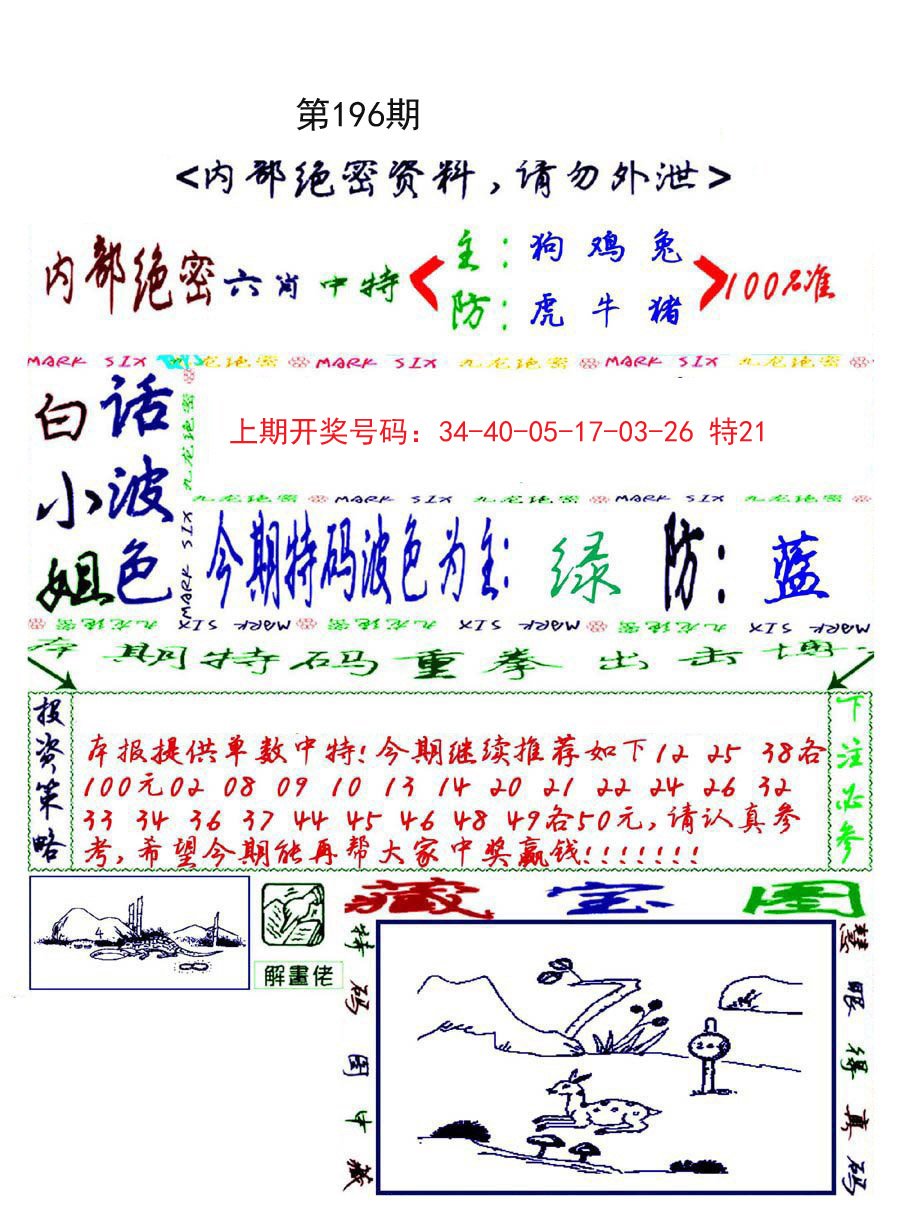 第196期
<内部绝密资料,请勿外泄>
内部绝密六肖中特
主:狗鸡兔
防:虎牛猪
100%准
MARK SIX 九龙绝密 MARK SIX 九龙绝密 MARK SIX 九龙绝密
白小姐
话波色
九龙绝密
MARK SIX
上期开奖号码：34-40-05-17-03-26 特21
九龙绝密 MARK SIX 九龙绝密 MARK SIX 九龙绝密
今期特码波色为主:绿 防:蓝
九龙绝密 MARK SIX MARK SIX 九龙绝密 MARK SIX 九龙绝密 MARK SIX
本期特码重拳出击博
投资策略
本报提供单数中特!今期继续推荐如下12 25 38各
100元02 08 09 10 13 14 20 21 22 24 26 32
33 34 36 37 44 45 46 48 49各50元,请认真参
考,希望今期能再帮大家中奖赢钱!!!!!!!
下注必参
藏宝图
解畫佬
特码图中藏
慧眼得真码